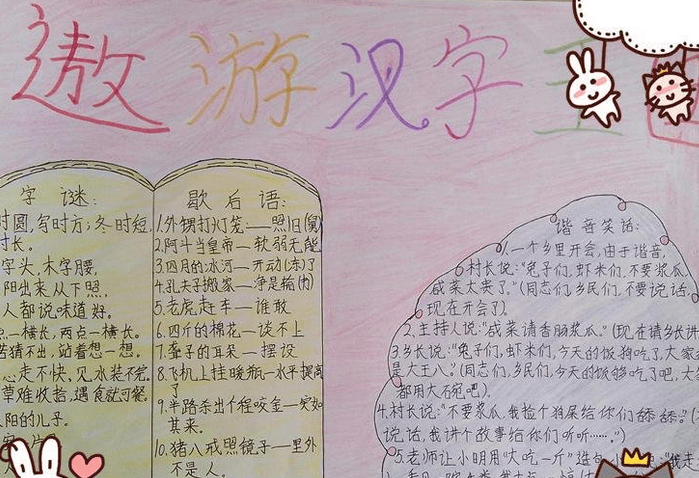 遨游汉字王
字谜:
时圆,写时方;冬时短,
时长。
字头,木字腰,
阳出来从下照,
人都说味道好。
一横长,两点一横长。
苦猜不出,站着想一想。
心走不快,见水装不完,
草难收拾,遇食就可餐。
阳的儿子。
歇后语:
1.外甥打灯笼——照旧(舅)
2.阿斗当皇帝——软弱无能
3.四月的冰河——开动(冻)了
4.孔夫子搬家——净是输(书)
5.老虎赶车——谁敢
6.四斤的棉花——谈不上
7.聋子的耳朵——摆设
8.飞机上挂暖瓶——水平提高
了
9.半路杀出个程咬金——突如
其来。
10.猪八戒照镜子——里外
不是人。
谐音笑话:
1.一个乡里开会,由于谐音,
村长说:“兔子们,虾米们,不要浆瓜,
咸菜太贵了。”(同志们,乡民们,不要说话,
现在开会了)
2.主持人说:“咸菜请香肠浆瓜。”(现在请乡长讲
3.乡长说:“兔子们,虾米们,今天的饭狗吃了,大家
是大王八。”(同志们,乡民们,今天的饭够吃了吧,大
都用大碗吧)
4.村长说:“不要浆瓜,我捡个狗屎给你们舔舔。”(
说话,我讲个故事给你们听听……。”)
5.老师让小明用“大吃一斤”造句